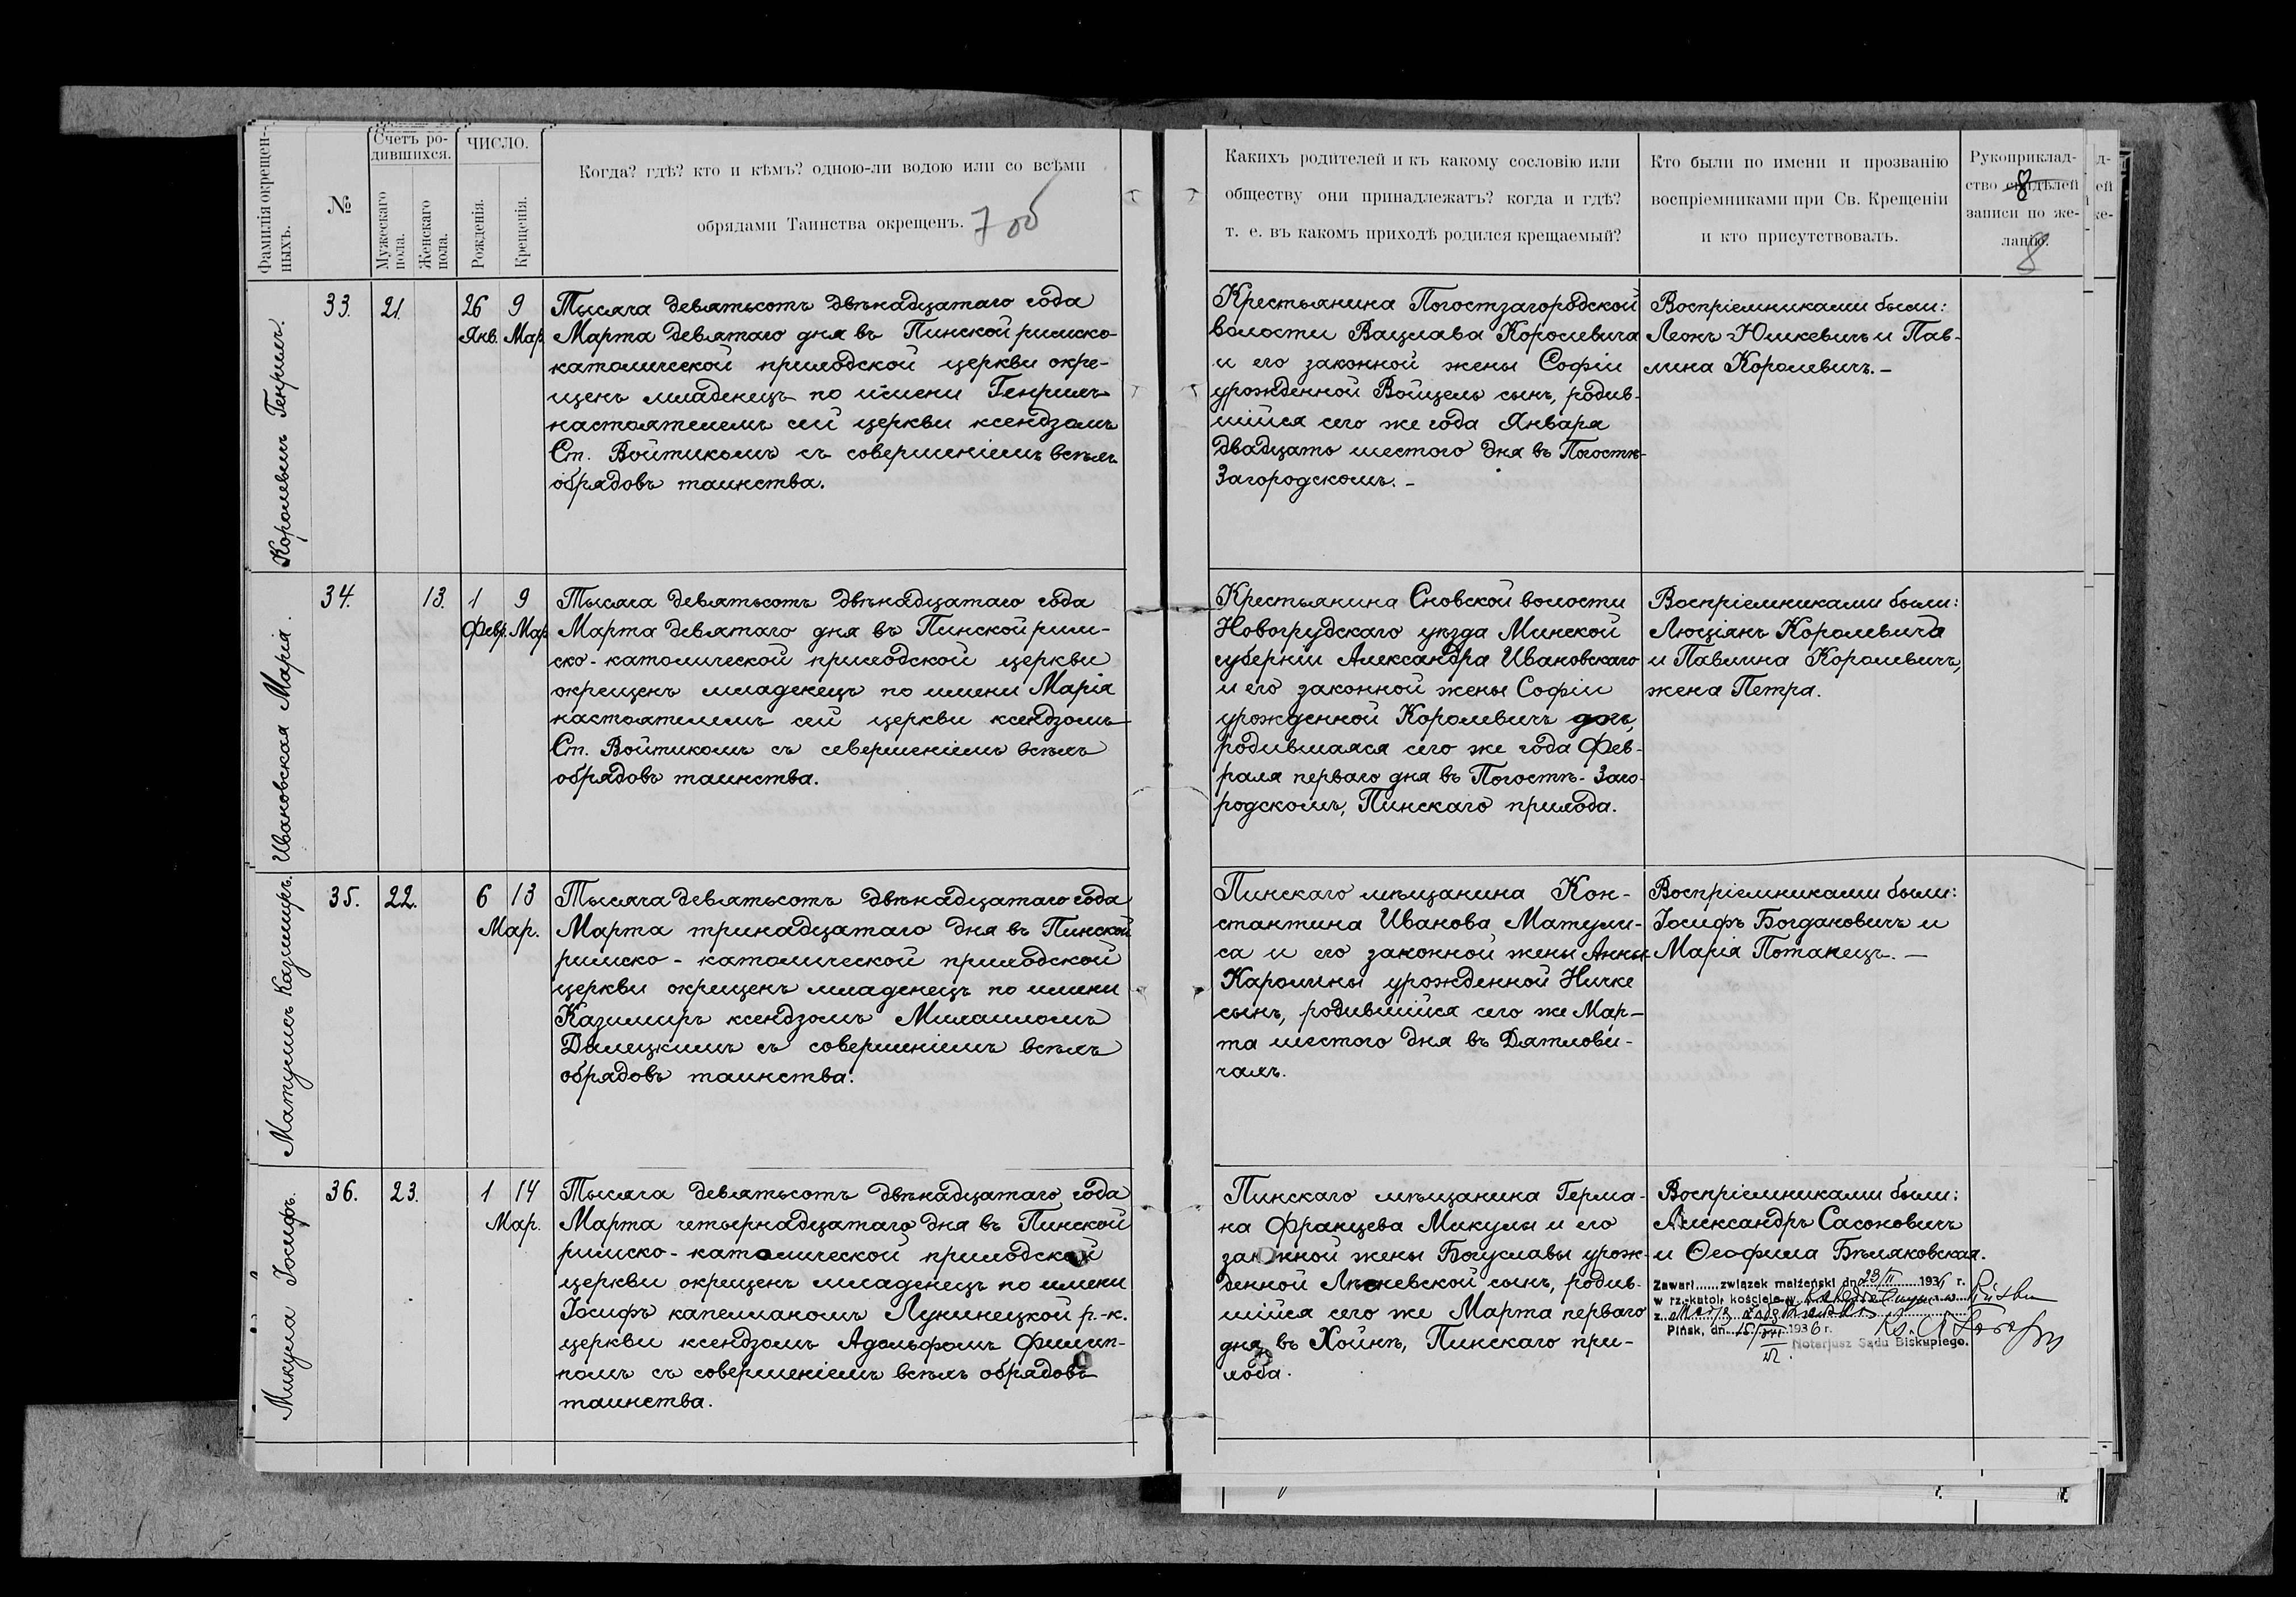 Фамилія окрещен-
ныхъ.
№
Счетъ ро-
дившихся.
Мужескаго
пола.
Женскаго
пола.
ЧИСЛО.
Рожденія.
Крещенія.
Когда? гдѣ? кто и кѣмъ? одною-ли водою или со всѣми
обрядами Таинства окрещенъ.
Какихъ родителей и къ какому сословію или
обществу они принадлежатъ? когда и гдѣ?
т. е. въ какомъ приходѣ родился крещаемый?
Кто были по имени и прозванію
воспріемниками при Св. Крещеніи
и кто присутствовалъ.
Рукоприклад-
ство свидѣлей
записи по же-
ланію.
8
Королевичъ Генрихъ.
33.
21.
26 9
Янв. Мар.
Тысяча девятьсотъ двѣнадцатаго года
Марта девятаго дня въ Пинской римско-
католической приходской церкви окре-
щенъ младенецъ по имени Генрихъ
настоятелемъ сей церкви ксендзомъ
Ст. Войтикомъ съ совершеніемъ всѣхъ
обрядовъ таинства.
Крестьянина Погостзагородской
волости Вацлава Королевича
и его законной жены Софіи
урожденной Войцель сынъ, родив-
шійся сего же года Января
двадцать шестого дня въ Погостѣ-
Загородскомъ. -
Воспріемниками были:
Леонъ Юшкевичъ и Пав-
лина Королевичъ. -
Ивановская Марія.
34.
13.
1 9
Февр. Мар.
Тысяча девятьсотъ двѣнадцатаго года
Марта девятаго дня въ Пинской рим-
ско-католической приходской церкви
окрещенъ младенецъ по имени Марія
настоятелемъ сей церкви ксендзомъ
Ст. Войтикомъ съ севершеніемъ всѣхъ
обрядовъ таинства.
Крестьянина Сновской волости
Новогрудскаго уѣзда Минской
губерніи Александра Ивановскаго
и его законной жены Софіи
урожденной Королевичъ дочь,
родившаяся сего же года Фев-
раля перваго дня въ Погостѣ-Заго-
родскомъ, Пинскаго прихода.
Воспріемниками были:
Люціанъ Королевича
и Павлина Королевичъ,
жена Петра.
Матулисъ Казимиръ.
35.
22.
6 13
Мар.
Тысяча девятьсотъ двѣнадцатаго года
Марта тринадцатаго дня въ Пинской
римско-католической приходской
церкви окрещенъ младенецъ по имени
Казимиръ ксендзомъ Михаиломъ
Далецкимъ съ совершеніемъ всѣхъ
обрядовъ таинства.
Пинскаго мѣщанина Кон-
стантина Иванова Матули-
са и его законной жены Анны-
Каролины урожденной Ничке
сынъ, родившійся сего же Мар-
та шестого дня въ Дятлови-
чахъ.
Воспріемниками были:
Іосифъ Богдановичъ и
Марія Потанецъ. -
Микула Іосифъ.
36.
23.
1 14
Мар.
Тысяча девятьсотъ двѣнадцатаго года
Марта четырнадцатаго дня въ Пинской
римско-католической приходской
церкви окрещенъ младенецъ по имени
Іосифъ капелланомъ Лунинецкой р.-к.
церкви ксендзомъ Адольфомъ Филип-
помъ съ совершеніемъ всѣхъ обрядовъ
таинства.
Пинскаго мѣщанина Герма-
на Францева Микулы и его
законной жены Богуславы урож-
денной сынъ, родив-
шійся сего же Марта перваго
дня въ Хойнѣ, Пинскаго при-
хода.
Воспріемниками были:
Александръ Сасоновичъ
и Ѳеофила Бѣляковская.
Zawarł ...... związek małżeński dn. 23/II 1936 r.
w rz.-katol. kościele w
z
Pińsk, dn. 1936 r. Ks.
Notarjusz Sądu Biskupiego.